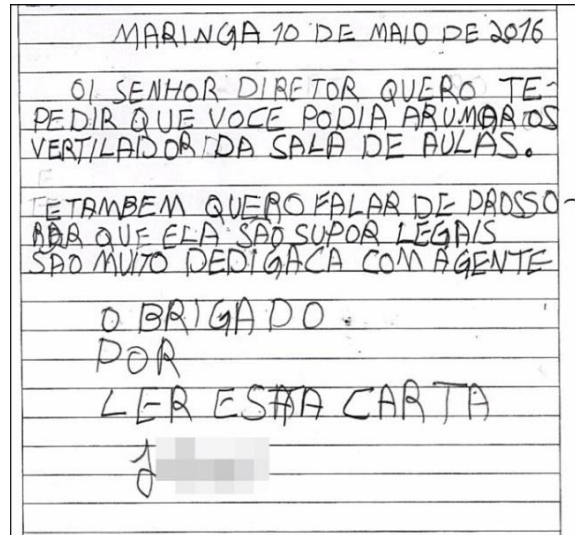 MARINGA 10 DE MAIO DE 2016
OI SENHOR DIRETOR QUERO TE-
PEDIR QUE VOCE PODIA ARUMAR OS
VERTILADOR DA SALA DE AULAS.
TETAMBEM QUERO FALAR DE PROSSO-
RAR QUE ELA SÃO SUPOR LEGAIS
SÃO MUITO DEDIGACA COM AGENTE
O BRIGADO.
POR
LER ESTA CARTA
J